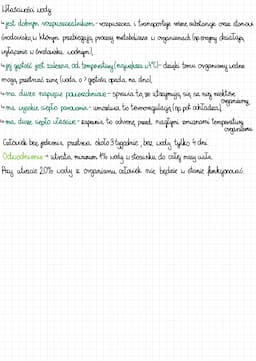 Właściwości wody
↳ jest dobrym rozpuszczalnikiem - rozpuszcza i transportuje różne substancje oraz stanowi
środowisko, w którym przebiegają procesy metaboliczne w organizmach (np. enzymy działają
wyłącznie w środowisku wodnym),
↳ jej gęstość jest zależna od temperatury (największa w 4°C) - dzięki temu organizmy wodne
mogą przetrwać zimę (woda o > gęstości opada na dno),
↳ ma duże napięcie powierzchniowe - sprawia to, że utrzymują się na niej niektóre
organizmy,
↳ ma wysokie ciepło parowania - umożliwia to termoregulację (np. pot ochładza),
↳ ma duże ciepło właściwe - zapewnia to ochronę przed nagłymi zmianami temperatury
organizmu.
Człowiek bez jedzenia przetrwa około 3 tygodnie, bez wody tylko 4 dni.
Odwodnienie - utrata minimum 1% wody w stosunku do całej masy ciała.
Przy utracie 20% wody z organizmu człowiek nie będzie w stanie funkcjonować.